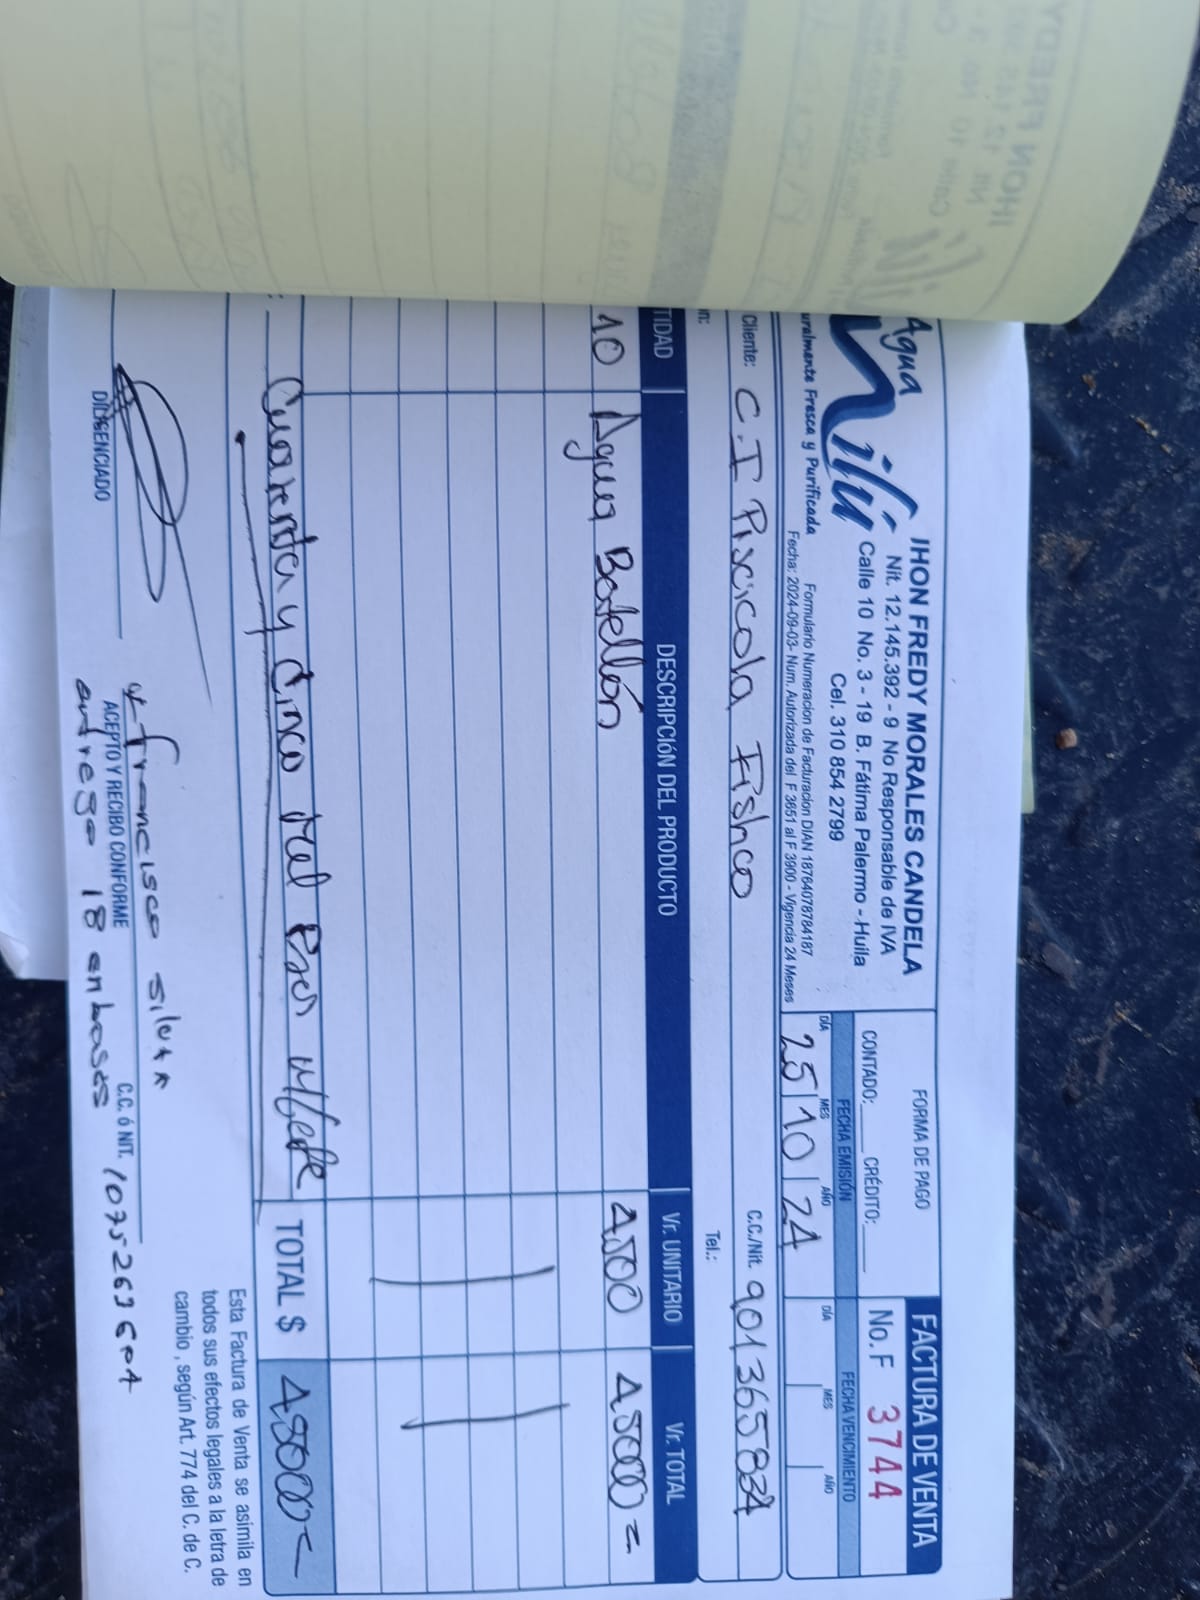 Agua
Nilú
uralmente Fresca y Purificada
JHON FREDY MORALES CANDELA
Nit. 12.145.392 - 9 No Responsable de IVA
Calle 10 No. 3 - 19 B. Fátima Palermo - Huila
Cel. 310 854 2799
Formulario Numeracion de Facturacion DIAN 18764078784187
Fecha: 2024-09-03- Num. Autorizada del F 3651 al F 3900 - Vigencia 24 Meses
FORMA DE PAGO
CONTADO:____ CRÉDITO:____
FACTURA DE VENTA
No. F 3744
FECHA EMISIÓN
DÍA MES AÑO
25 10 24
FECHA VENCIMIENTO
DÍA MES AÑO
Cliente: C.I Piscicola Fishco C.C./Nit. 901365834
n: Tel.:
TIDAD DESCRIPCIÓN DEL PRODUCTO Vr. UNITARIO Vr. TOTAL
10 Agua Botellón 4500 45000=
: Cuarenta y Cinco Mil TOTAL $ 45000=
Francisco Silva
DILIGENCIADO ACEPTO Y RECIBO CONFORME C.C. ó NIT.
entrego 18 enbases
Esta Factura de Venta se asimila en
todos sus efectos legales a la letra de
cambio , según Art. 774 del C. de C.